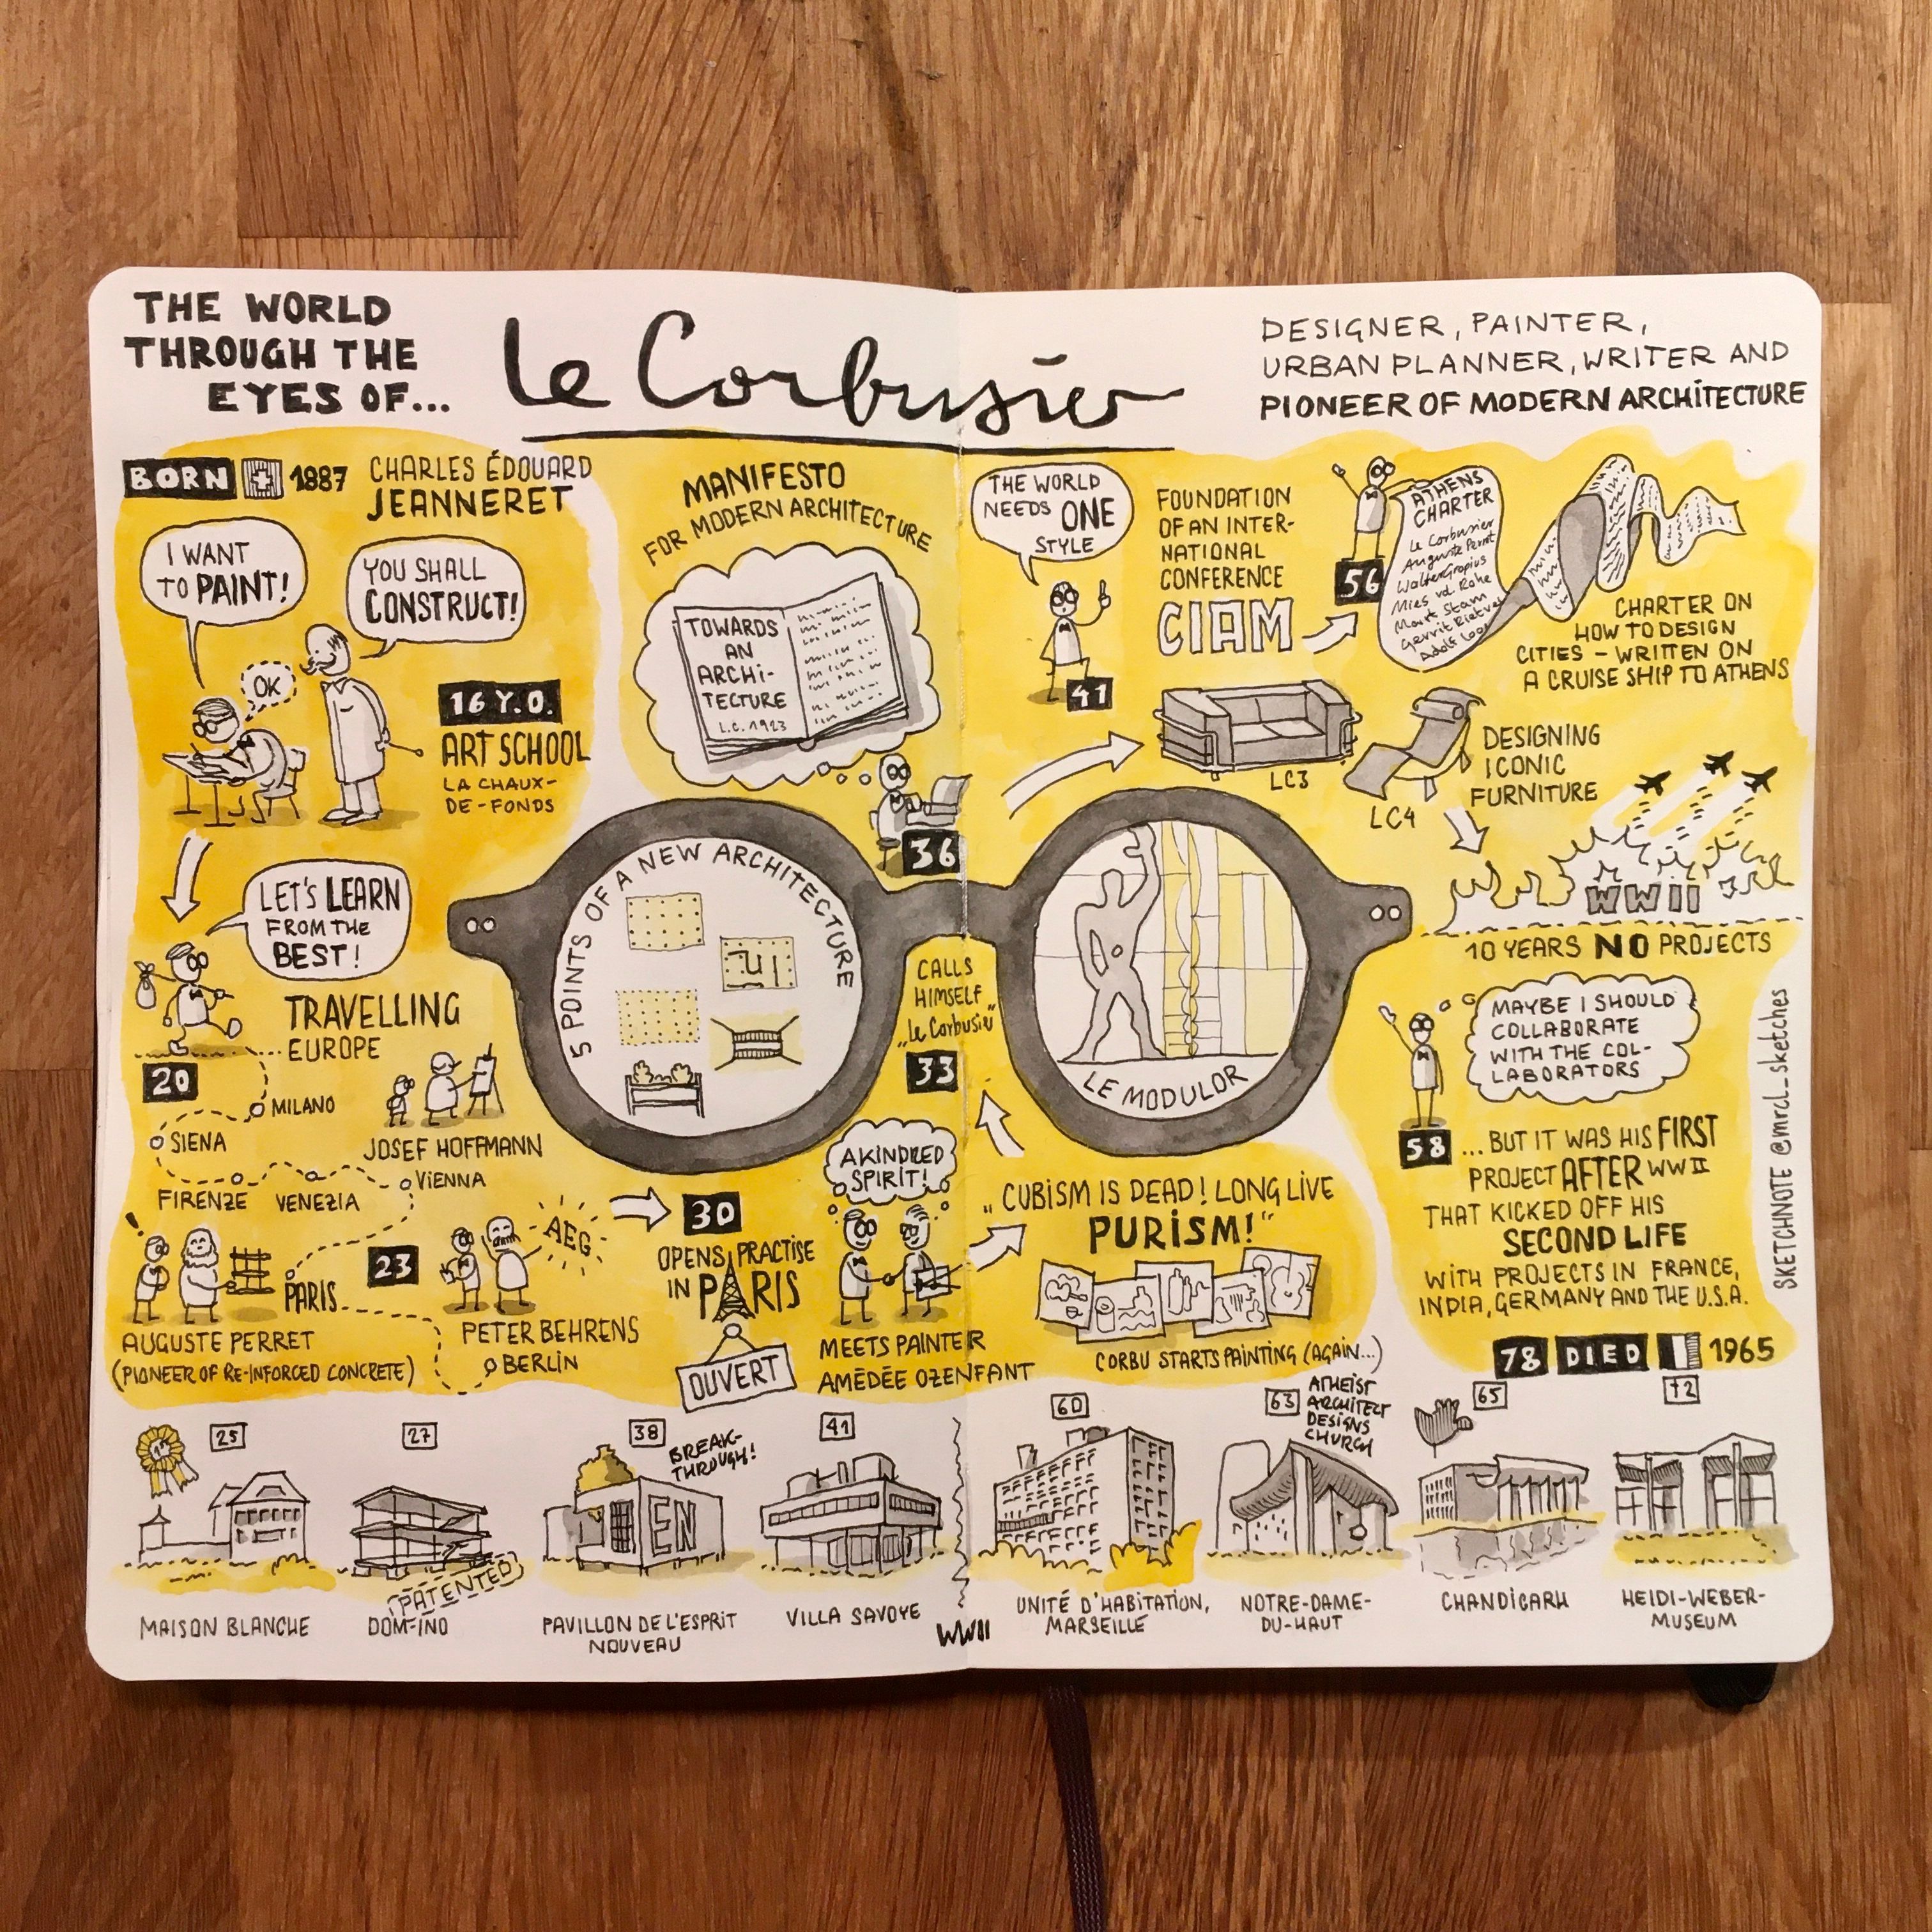 THE WORLD
THROUGH THE
EYES OF...
le Corbusier
DESIGNER, PAINTER,
URBAN PLANNER, WRITER AND
PIONEER OF MODERN ARCHITECTURE
BORN 1887 CHARLES ÉDOUARD
JEANNERET
I WANT
TO PAINT!
YOU SHALL
CONSTRUCT!
OK
16 Y.O.
ART SCHOOL
LA CHAUX-
DE-FONDS
LET'S LEARN
FROM THE
BEST!
TRAVELLING
EUROPE
20
MILANO
SIENA
FIRENZE
VENEZIA
VIENNA
JOSEF HOFFMANN
!
PARIS
AUGUSTE PERRET
(PIONEER OF RE-INFORCED CONCRETE)
23
AEG
PETER BEHRENS
BERLIN
30
OPENS PRACTISE
IN PARIS
OUVERT
A KINDRED
SPIRIT!
MEETS PAINTER
AMÉDÉE OZENFANT
"CUBISM IS DEAD! LONG LIVE
PURISM!"
CORBU STARTS PAINTING (AGAIN...)
CALLS
HIMSELF
"Le Corbusier"
33
MANIFESTO
FOR MODERN ARCHITECTURE
TOWARDS
AN
ARCHI-
TECTURE
L.C. 1923
36
5 POINTS OF A NEW ARCHITECTURE
LE MODULOR
THE WORLD
NEEDS ONE
STYLE
41
FOUNDATION
OF AN INTER-
NATIONAL
CONFERENCE
CIAM
56
ATHENS
CHARTER
Le Corbusier
Auguste Perret
Walter Gropius
Mies vd Rohe
Mart Stam
Gerrit Rietvel
Adolf Loo
CHARTER ON
HOW TO DESIGN
CITIES – WRITTEN ON
A CRUISE SHIP TO ATHENS
LC3
LC4
DESIGNING
ICONIC
FURNITURE
WWII
10 YEARS NO PROJECTS
MAYBE I SHOULD
COLLABORATE
WITH THE COL-
LABORATORS
58
...BUT IT WAS HIS FIRST
PROJECT AFTER WWII
THAT KICKED OFF HIS
SECOND LIFE
WITH PROJECTS IN FRANCE,
INDIA, GERMANY AND THE U.S.A.
78 DIED 1965
SKETCHNOTE @mrcl_sketches
25
MAISON BLANCHE
27
PATENTED
DOM-INO
38
BREAK-
THROUGH!
EN
PAVILLON DE L'ESPRIT
NOUVEAU
41
VILLA SAVOYE
WWII
60
UNITÉ D'HABITATION,
MARSEILLE
63
ATHEIST
ARCHITECT
DESIGNS
CHURCH
NOTRE-DAME-
DU-HAUT
65
CHANDIGARH
72
HEIDI-WEBER-
MUSEUM